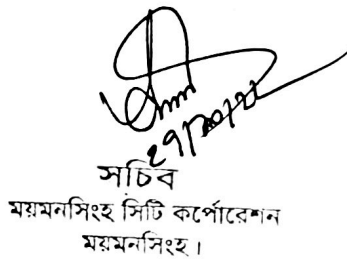 সচিব
ময়মনসিংহ সিটি কর্পোরেশন
ময়মনসিংহ।